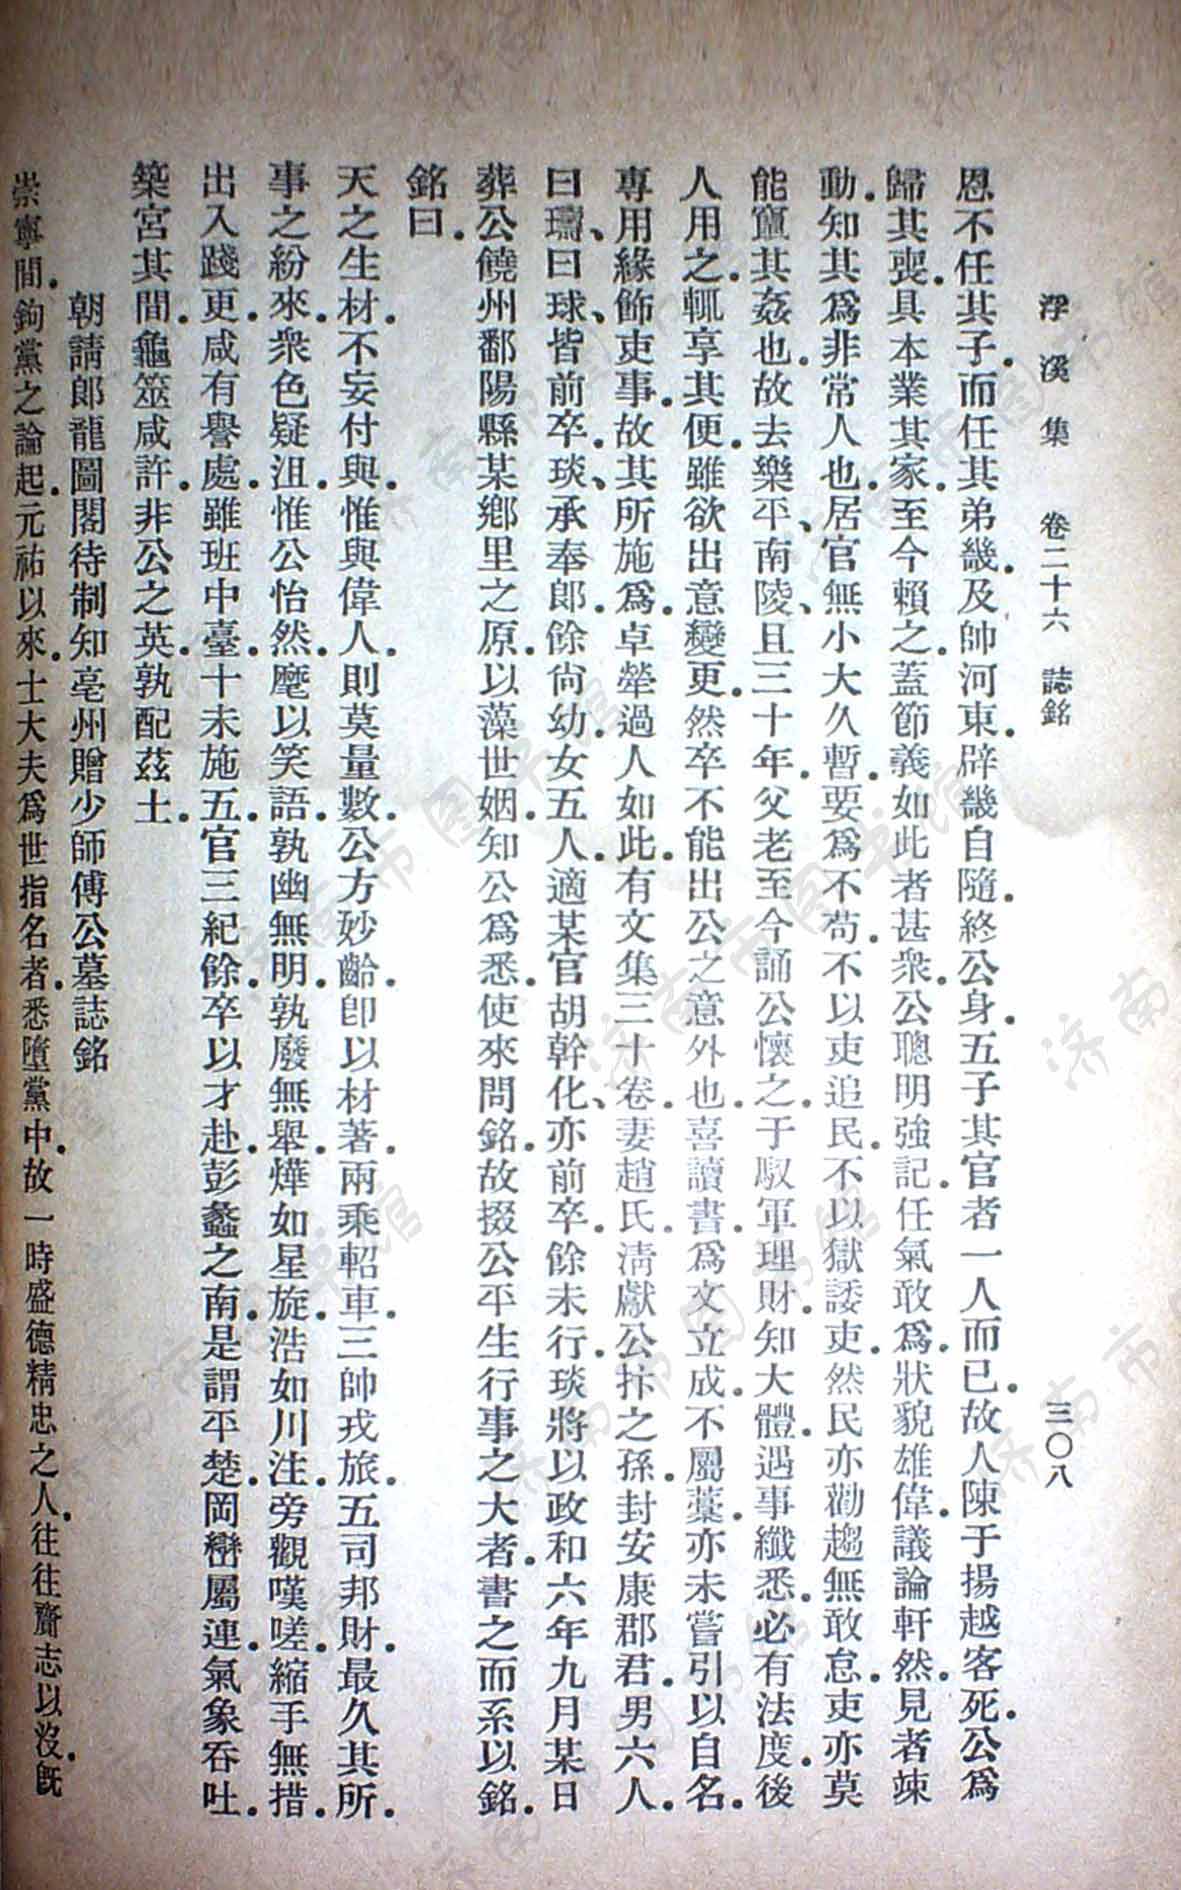 浮溪集 卷二十六 誌銘 三〇八
恩不任其子.而任其弟畿.及帥河東.辟畿自隨.終公身.五子其官者一人而已.故人陳于揚越客死.公爲
歸其喪.具本業其家.至今賴之.蓋節義如此者甚衆.公聰明強記.任氣敢爲.狀貌雄偉.議論軒然.見者竦
動.知其爲非常人也.居官無小大久暫.要爲不苟.不以吏追民.不以獄諉吏.然民亦勸趨無敢怠.吏亦莫
能竄其姦也.故去樂平、南陵、且三十年.父老至今誦公懷之.于馭軍理財.知大體.遇事纖悉.必有法度.後
人用之.輒享其便.雖欲出意變更.然卒不能出公之意外也.喜讀書.爲文立成.不屬藁.亦未嘗引以自名.
專用緣飾吏事.故其所施爲.卓犖過人如此.有文集三十卷.妻趙氏.淸獻公抃之孫.封安康郡君.男六人.
曰璹、曰球、皆前卒.琰、承奉郎.餘尙幼.女五人.適某官胡幹化、亦前卒.餘未行.琰將以政和六年九月某日
葬公饒州鄱陽縣某鄉里之原.以藻世姻.知公爲悉.使來問銘.故掇公平生行事之大者.書之而系以銘.
銘曰.
天之生材.不妄付與.惟與偉人.則莫量數.公方妙齡.卽以材著.兩乘軺車.三帥戎旅.五司邦財.最久其所.
事之紛來.衆色疑沮.惟公怡然.麾以笑語.孰幽無明.孰廢無舉.燁如星旋.浩如川注.旁觀嘆嗟.縮手無措.
出入踐更.咸有譽處.雖班中臺.十未施五.官三紀餘.卒以才赴.彭蠡之南.是謂平楚.岡巒屬連.氣象吞吐.
築宮其間.龜筮咸許.非公之英.孰配茲土.
朝請郎龍圖閣待制知亳州贈少師傅公墓誌銘
崇寧間.鉤黨之論起.元祐以來.士大夫爲世指名者.悉墮黨中.故一時盛德精忠之人.往往齎志以沒.旣